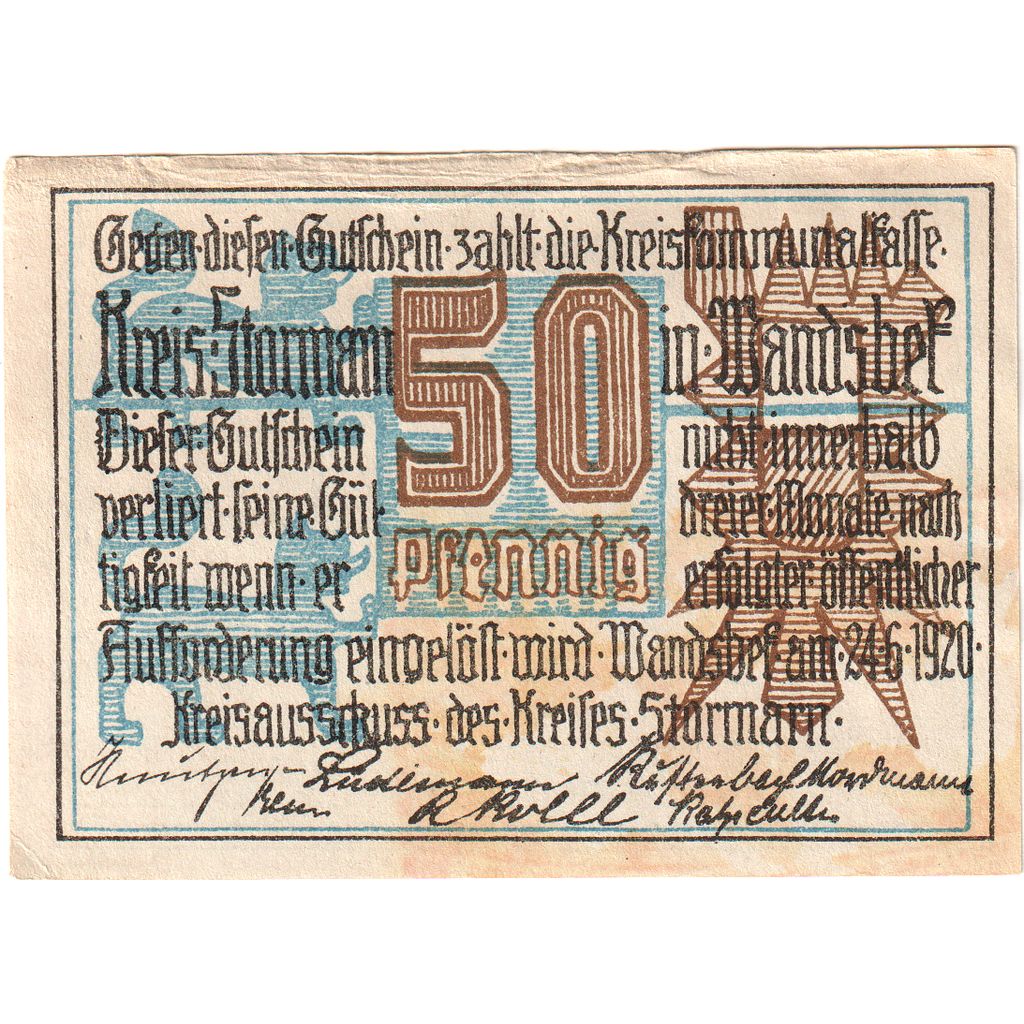 Gegen·diesen·Gutschein·zahlt·die·Kreiskommunalkasse·
Kreis·Stormarn 50 in·Wandsbek
Dieser·Gutschein nicht·innerhalb
verliert·seine·Gül dreier·Monate·nach
tigkeit wenn·er Pfennig erfolgter·öffentlicher
Aufforderung eingelöst·wird·Wandsbek·am·24·6·1920·
Kreisausschuss·des·Kreises·Stormarn·
Lüdemann Nordmann